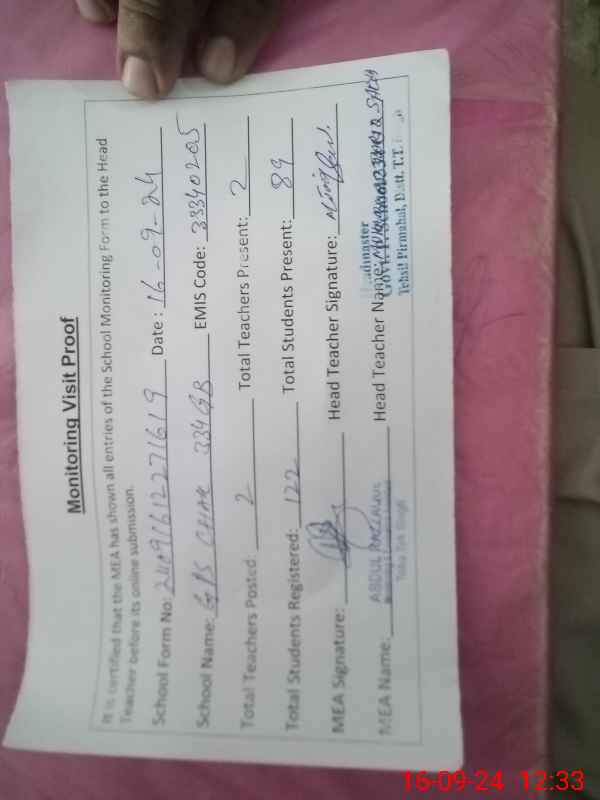 Monitoring Visit Proof
It is certified that the MEA has shown all entries of the School Monitoring Form to the Head
Teacher before its online submission.
School Form No: 24091612271619 Date : 16-09-24
School Name: GPS CHAK 334 GB EMIS Code: 33340205
Total Teachers Posted: 2 Total Teachers Present: 2
Total Students Registered: 122 Total Students Present: 89
MEA Signature: Head Teacher Signature:
MEA Name: ABDUL Head Teacher Name:
Headmaster
Govt. P. School 334
Tehsil Pirmahal, Distt. T.T.
Toba Tek Singh
16-09-24 12:33